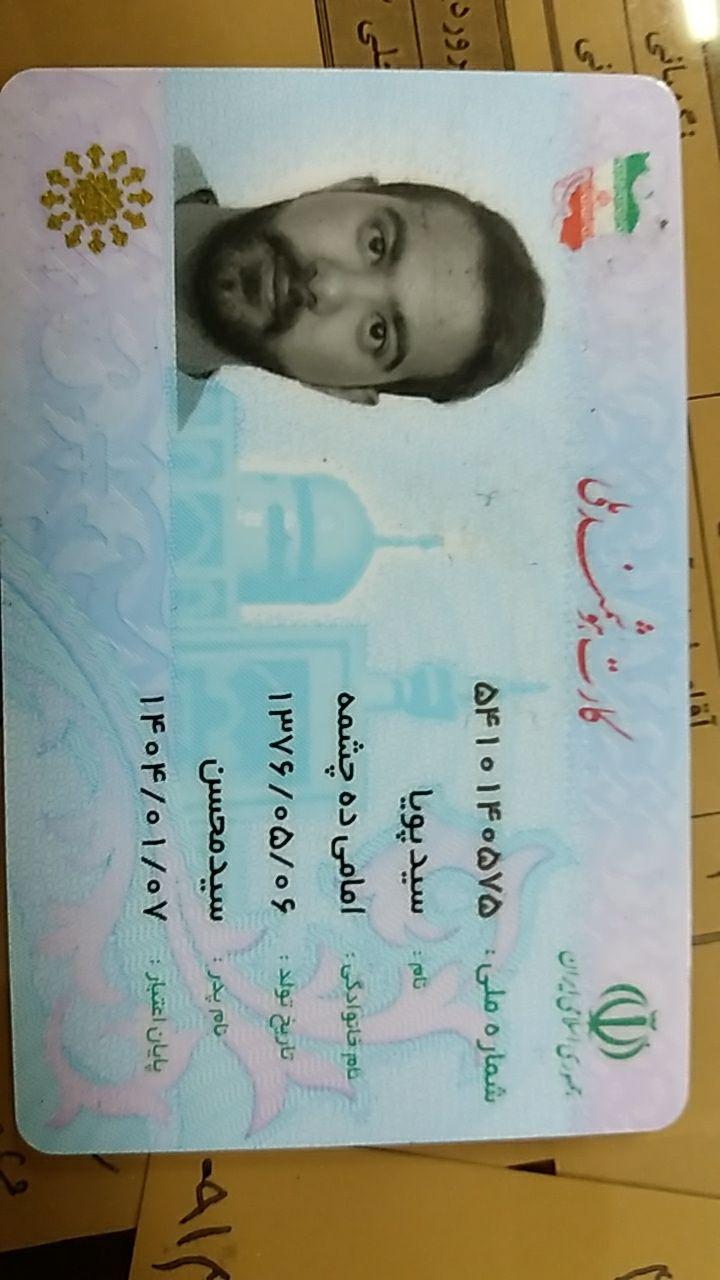 جمهوری اسلامی ایران
کارت هوشمند ملی
شماره ملی: ۵۴۱۰۱۴۰۵۷۵
نام: سید پویا
نام خانوادگی: امامی ده چشمه
تاریخ تولد: ۱۳۷۶/۰۵/۰۶
نام پدر: سیدمحسن
پایان اعتبار: ۱۴۰۴/۰۱/۰۷